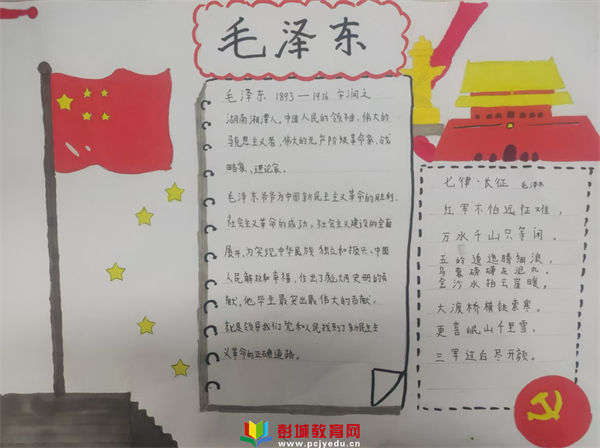 毛泽东
毛泽东 1893—1976 字润之
湖南湘潭人，中国人民的领袖，伟大的
马克思主义者，伟大的无产阶级革命家、战
略家、理论家。
毛泽东爷爷为中国新民主主义革命的胜利、
社会主义革命的成功，社会主义建设的全面
展开，为实现中华民族独立和振兴、中国
人民解放和幸福，作出了彪炳史册的贡
献。他毕生最突出最伟大的贡献，
就是领导我们党和人民找到了新民主主
义革命的正确道路。
七律·长征 毛泽东
红军不怕远征难，
万水千山只等闲。
五岭逶迤腾细浪，
乌蒙磅礴走泥丸。
金沙水拍云崖暖，
大渡桥横铁索寒。
更喜岷山千里雪，
三军过后尽开颜。
彭城教育网
www.pcjyedu.cn